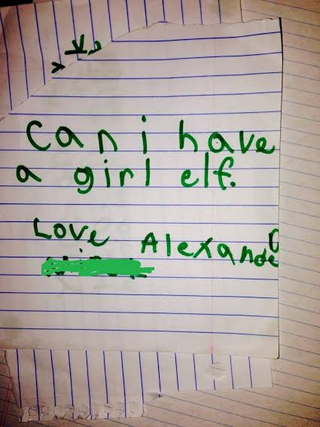 can i have
a girl elf.
Love Alexande